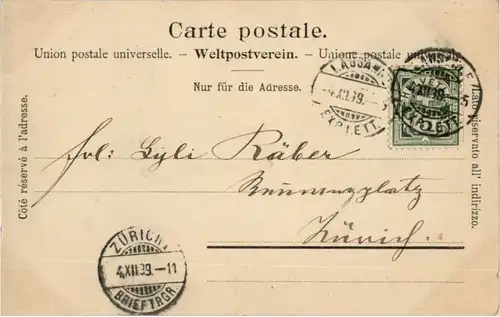 Carte postale.
Union postale universelle. – Weltpostverein. – Unione postale
Nur für die Adresse.
Côté réservé à l'adresse.
Lato riservato all' indirizzo.
LAUSANNE
4.XII.99.
EXP. LETT.
LAUSANNE
4.XII.99.
EXP. LETT.
5
Räber
Zürich.
ZÜRICH
4.XII.99.–11
BRIEFTRGR.